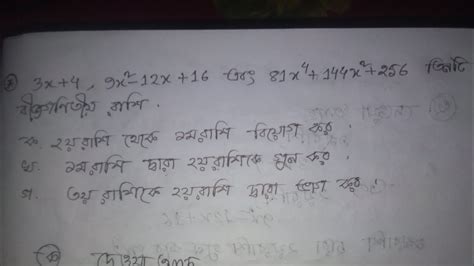 3x+4, 9x²-12x+16 এবং 81x⁴+144x²+256 তিনটি
বীজগণিতীয় রাশি।
ক. ২য়রাশি থেকে ১মরাশি বিয়োগ কর।
খ. ১মরাশি দ্বারা ২য়রাশিকে গুন কর।
গ. ৩য় রাশিকে ২য়রাশি দ্বারা ভাগ কর।
দেওয়া আছে